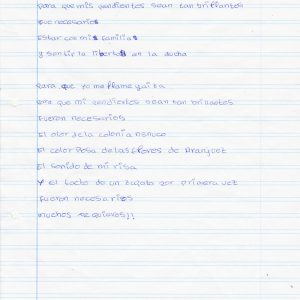 para que mis pendientes sean tan brillantes
que necesario
Estar con mis familias
y sentir la libertad en la ducha
para que yo me llame yaiza
para que mi pendientes sean tan brillantes
Fueron necesarios
El olor de la colonia nenuco
El color Rosa de las flores de Aranjuez
El sonido de mi risa
Y el tacto de un zapato por primera vez
Fueron necesarios
muchos te quieros!!